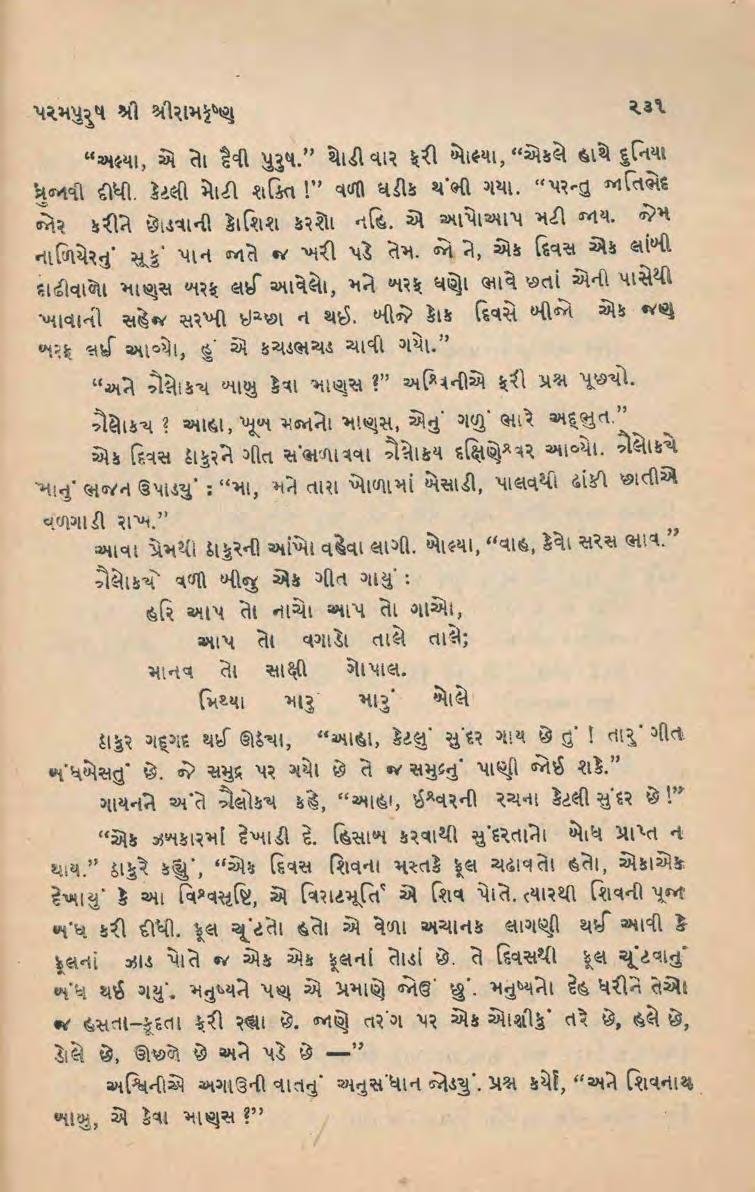 પરમપુરુષ શ્રી શ્રીરામકૃષ્ણ ૨૩૧
“અલ્યા, એ તો દૈવી પુરુષ.” થોડી વાર ફરી બોલ્યા, “એકલે હાથે દુનિયા
ધ્રુજાવી દીધી. કેટલી મોટી શક્તિ !” વળી ઘડીક થંભી ગયા. “પરન્તુ જાતિભેદ
જોર કરીને છોડવાની કોશિશ કરશો નહિ. એ આપોઆપ મટી જાય. જેમ
નાળિયેરનું સૂકું પાન જાતે જ ખરી પડે તેમ. જો ને, એક દિવસ એક લાંબી
દાઢીવાળો માણસ બરફ લઈ આવેલો, મને બરફ ઘણો ભાવે છતાં એની પાસેથી
ખાવાની સહેજ સરખી ઇચ્છા ન થઈ. બીજે કોક દિવસે બીજો એક જણ
બરફ લઈ આવ્યો, હું એ કચડભચડ ચાવી ગયો.”
“અને ત્રૈલોકય બાબુ કેવા માણસ ?” અશ્વિનીએ ફરી પ્રશ્ન પૂછ્યો.
ત્રૈલોકય ? આહા, ખૂબ મજાનો માણસ, એનું ગળું ભારે અદ્ભુત.”
એક દિવસ ઠાકુરને ગીત સંભળાવવા ત્રૈલોકય દક્ષિણેશ્વર આવ્યો. ત્રૈલોકયે
માનું ભજન ઉપાડ્યું : “મા, મને તારા ખોળામાં બેસાડી, પાલવથી ઢાંકી છાતીએ
વળગાડી રાખ.”
આવા પ્રેમથી ઠાકુરની આંખો વહેવા લાગી. બોલ્યા, “વાહ, કેવો સરસ ભાવ.”
ત્રૈલોકયે વળી બીજુ એક ગીત ગાયું :
હરિ આપ તો નાચો આપ તો ગાઓ,
આપ તો વગાડો તાલે તાલે;
માનવ તો સાક્ષી ગોપાલ.
મિથ્યા મારુ મારું બોલે
ઠાકુર ગદ્ગદ થઈ ઊઠ્યા, “આહા, કેટલું સુંદર ગાય છે તું ! તારું ગીત
બંધબેસતું છે. જે સમુદ્ર પર ગયો છે તે જ સમુદ્રનું પાણી જોઈ શકે.”
ગાયનને અંતે ત્રૈલોકય કહે, “આહા, ઈશ્વરની રચના કેટલી સુંદર છે !”
“એક ઝબકારમાં દેખાડી દે. હિસાબ કરવાથી સુંદરતાનો બોધ પ્રાપ્ત ન
થાય.” ઠાકુરે કહ્યું, “એક દિવસ શિવના મસ્તકે ફૂલ ચઢાવતો હતો, એકાએક
દેખાયું કે આ વિશ્વસૃષ્ટિ, એ વિરાટમૂર્તિ એ શિવ પોતે. ત્યારથી શિવની પૂજા
બંધ કરી દીધી. ફૂલ ચૂંટતો હતો એ વેળા અચાનક લાગણી થઈ આવી કે
ફૂલનાં ઝાડ પોતે જ એક એક ફૂલનાં તોડાં છે. તે દિવસથી ફૂલ ચૂંટવાનું
બંધ થઈ ગયું. મનુષ્યને પણ એ પ્રમાણે જોઉં છું. મનુષ્યનો દેહ ધરીને તેઓ
જ હસતા–કૂદતા ફરી રહ્યા છે. જાણે તરંગ પર એક ઓશીકું તરે છે, હલે છે,
ડોલે છે, ઊછળે છે અને પડે છે —”
અશ્વિનીએ અગાઉની વાતનું અનુસંધાન જોડ્યું. પ્રશ્ન કર્યો, “અને શિવનાથ
બાબુ, એ કેવા માણસ ?”